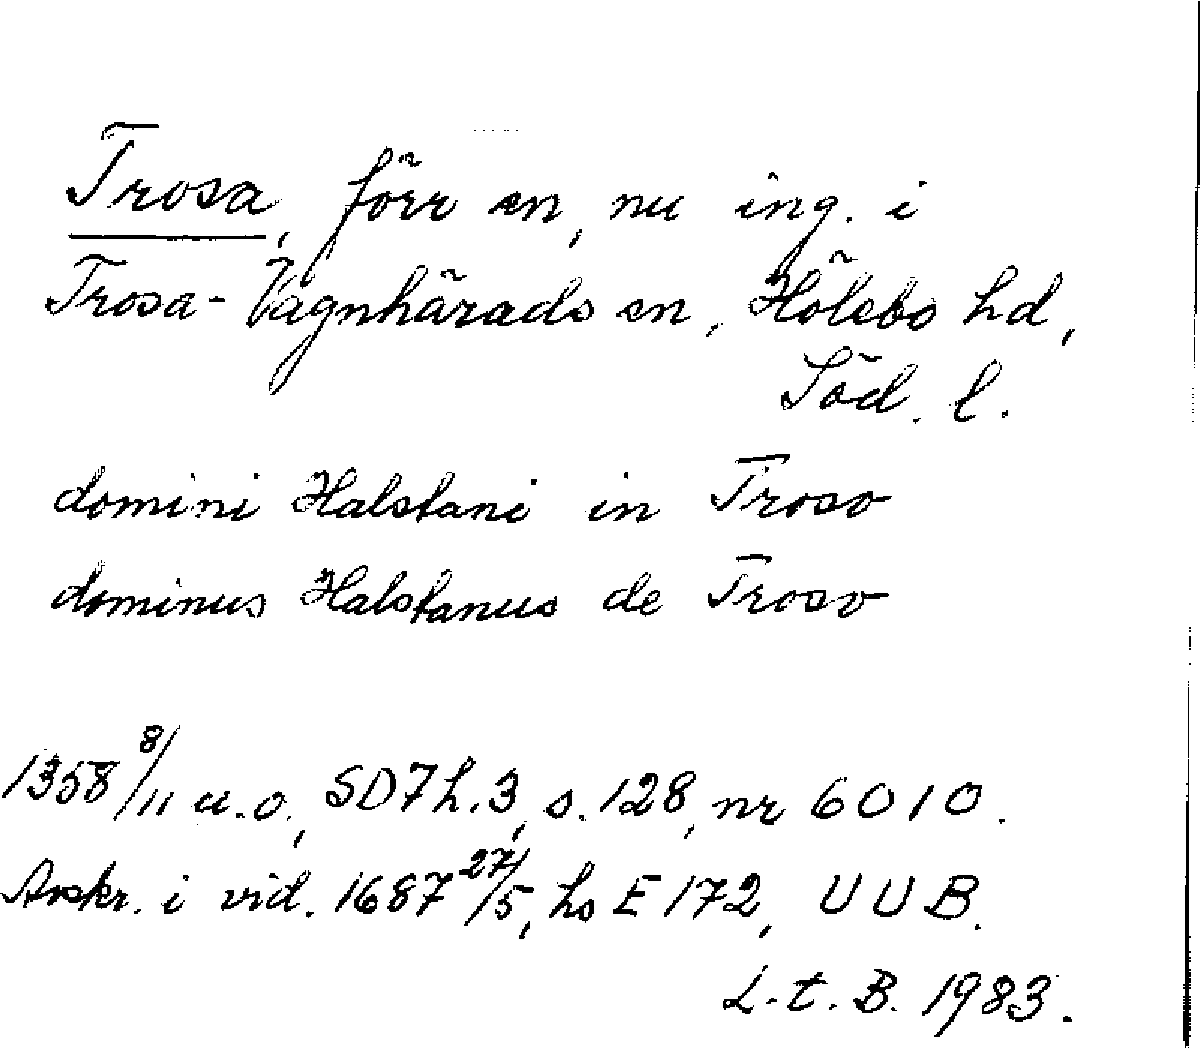 Trosa, förr sn, nu ing. i
Trosa-Vagnhärads sn, Hölebo hd,
Söd. l.
domini Halstani in Troso
dominus Halstanus de Troso
1358 8/11 u.o., SD7 h.3, s.128, nr 6010.
Avskr. i vid. 1687 27/5, hs E 172, UUB.
L.t.B. 1983.